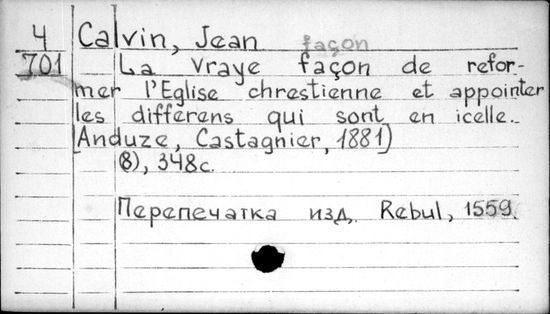 4 Calvin, Jean façon
701 La vraye façon de refor-
mer l'Eglise chrestienne et appointer
les differens qui sont en icelle.
[Anduze, Castagnier, 1881]
(8), 348c.
Перепечатка изд. Rebul, 1559.